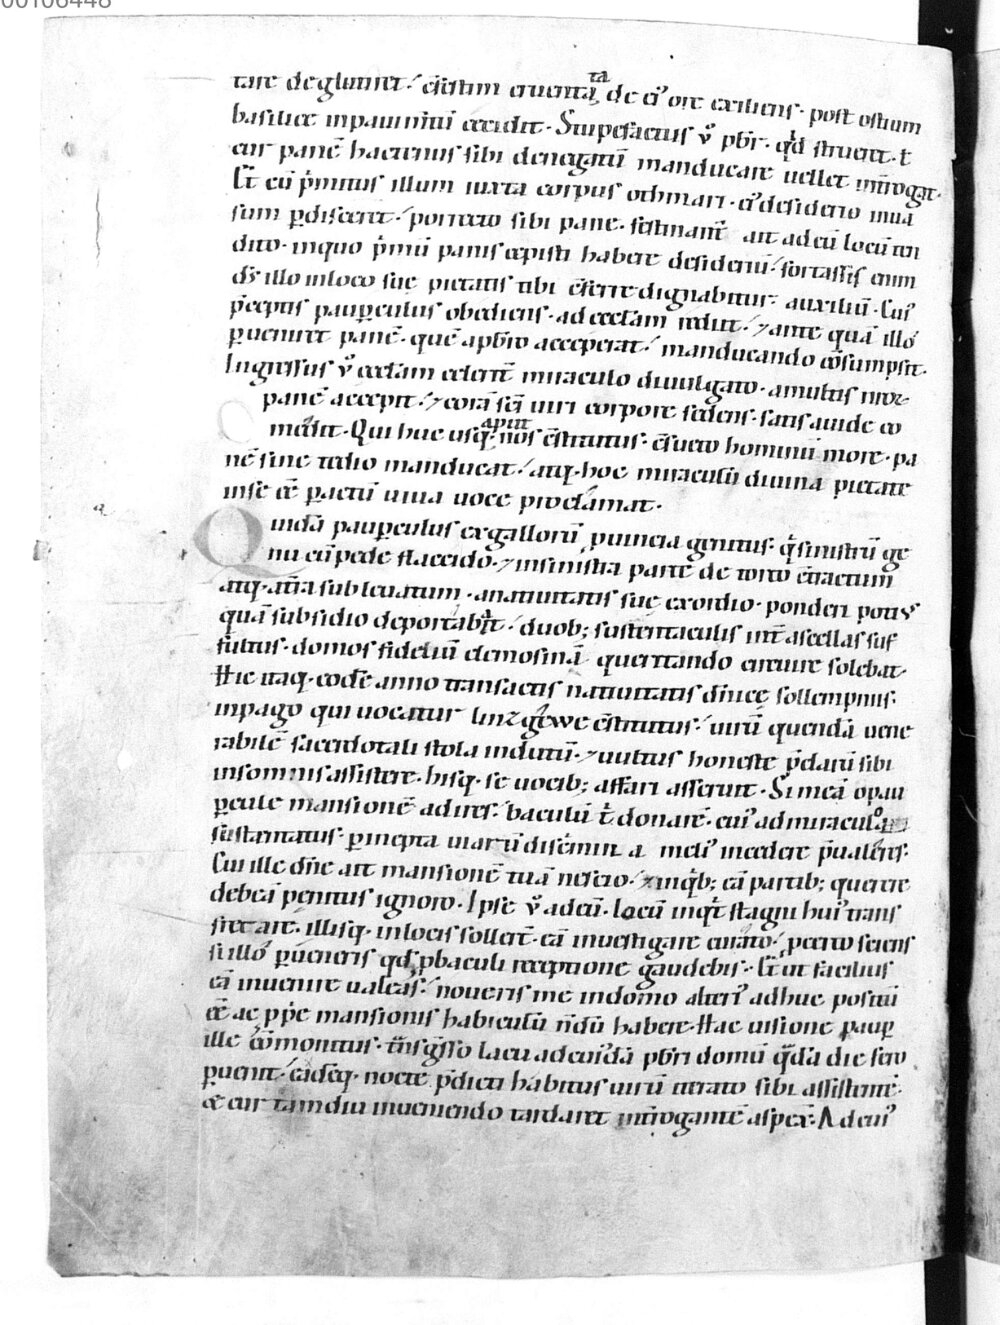 00106448
tare deglutiret. c̅festim cruenta ta de ei᾽ ore exiliens. post ostium
basilice inpauim̅tu̅ cecidit. Stupefactus v̊ pbr̅. qd̅ strueret. t̅
cur pane̅ hactenus sibi denegatu̅ manducare uellet int̅rogat.
Et cu̅ p̅mitus illum iuxta corpus othmari. ei᾽ desiderio inua
sum p̱disceret. porrecto sibi pane. festinant̅ ait ad eu̅ locu̅ ten
dito. inquo p̅mu̅ panis cepisti habere desideriu̅. fortassis enim
ds̅ illo inloco suę pietatis tibi c̅ferre dignabitur. auxiliu̅. Cui᾽
p̅ceptis paup̱culus obediens. ad eccl̅am rediit. ⁊ ante qua̅ illo᾽
p̱ueniret pane̅. que̅ a pbr̅o acceperat. manducando c̅su̅mpsit.
Ingressus v̊ eccl̅am celerit̅ miraculo diuulgato. amultis mox
pane̅ accepit. ⁊ cora̅ sc̅i uiri corpore sedens. satis auide co
medit. Qui huc usq. apud nos c̅stitutus. c̅sueto hominu̅ more. pa
ne̅ sine tedio manducat. atq. hoc miraculu̅ diuina pietate
inse e̅e p̱actu̅ uiua uoce proclamat.
Quida̅ paup̱culus ex galloru̅ puincia genitus. q̅ sinistru̅ ge
nu cu̅ pede flaccido. ⁊ insinistra parte de toto c̅tractum
atq. at̅ra subleuatum. anatiuitatis suę exordio. ponderi poti᾽
qua̅ subsidio deportabat. duob; sustentaculis int̅ ascellas suf
fultus. domos fideliu̅ elemosina̅ queritando circuire solebat.
Hic itaq. eode̅ anno transactis natiuitatis d̅nicę sollempniis.
inpago qui uocatur linzgewe c̅stitutus. uiru̅ quenda̅ uene
rabile̅ sacerdotali stola indutu̅. ⁊ uultus honeste p̅claru̅ sibi
insomnis assistere. hisq. se uocib; affari asseruit. Si mea̅ o pau
p̱cule mansione̅ adires. baculu̅ t̅ donare̅. cui᾽ adminiculo
sustentatus. p̱ incepta uiaru̅ discrimina meli᾽ incedere p̅ualeres.
Cui ille dn̅e ait mansione̅ tua̅ nescio. ⁊ inq̅b; ea̅ partib; querere
debea̅ penitus ignoro. Ipse v̊ ad eu̅. Locu̅ inq̅t stagni hui᾽ trans
fretare. illisq. inlocis sollert̅. ea̅ inuestigare curato. p̱certo sciens
si illo᾽ p̱ueneris qd̅ p̱ baculi receptione gaudebis. Et ut facilius
ea̅ inuenire ualeas. noueris me indomo alteri᾽ adhuc positu̅
e̅e ac pp̅e mansionis habitculu̅ nd̅u̅ habere. Hac uisione paup̱
ille c̅monitus. t̅nsgr̅sso lacu ad cui᾽da̅ pbr̅i domu̅ q̅da̅ die sero
p̱uenit. ead̅eq. nocte p̅dicti habitus uiru̅ iterato sibi assistente̅.
⁊ cur tamdiu inueniendo tardaret int̅rogante̅ aspex̅. Ad cui᾽